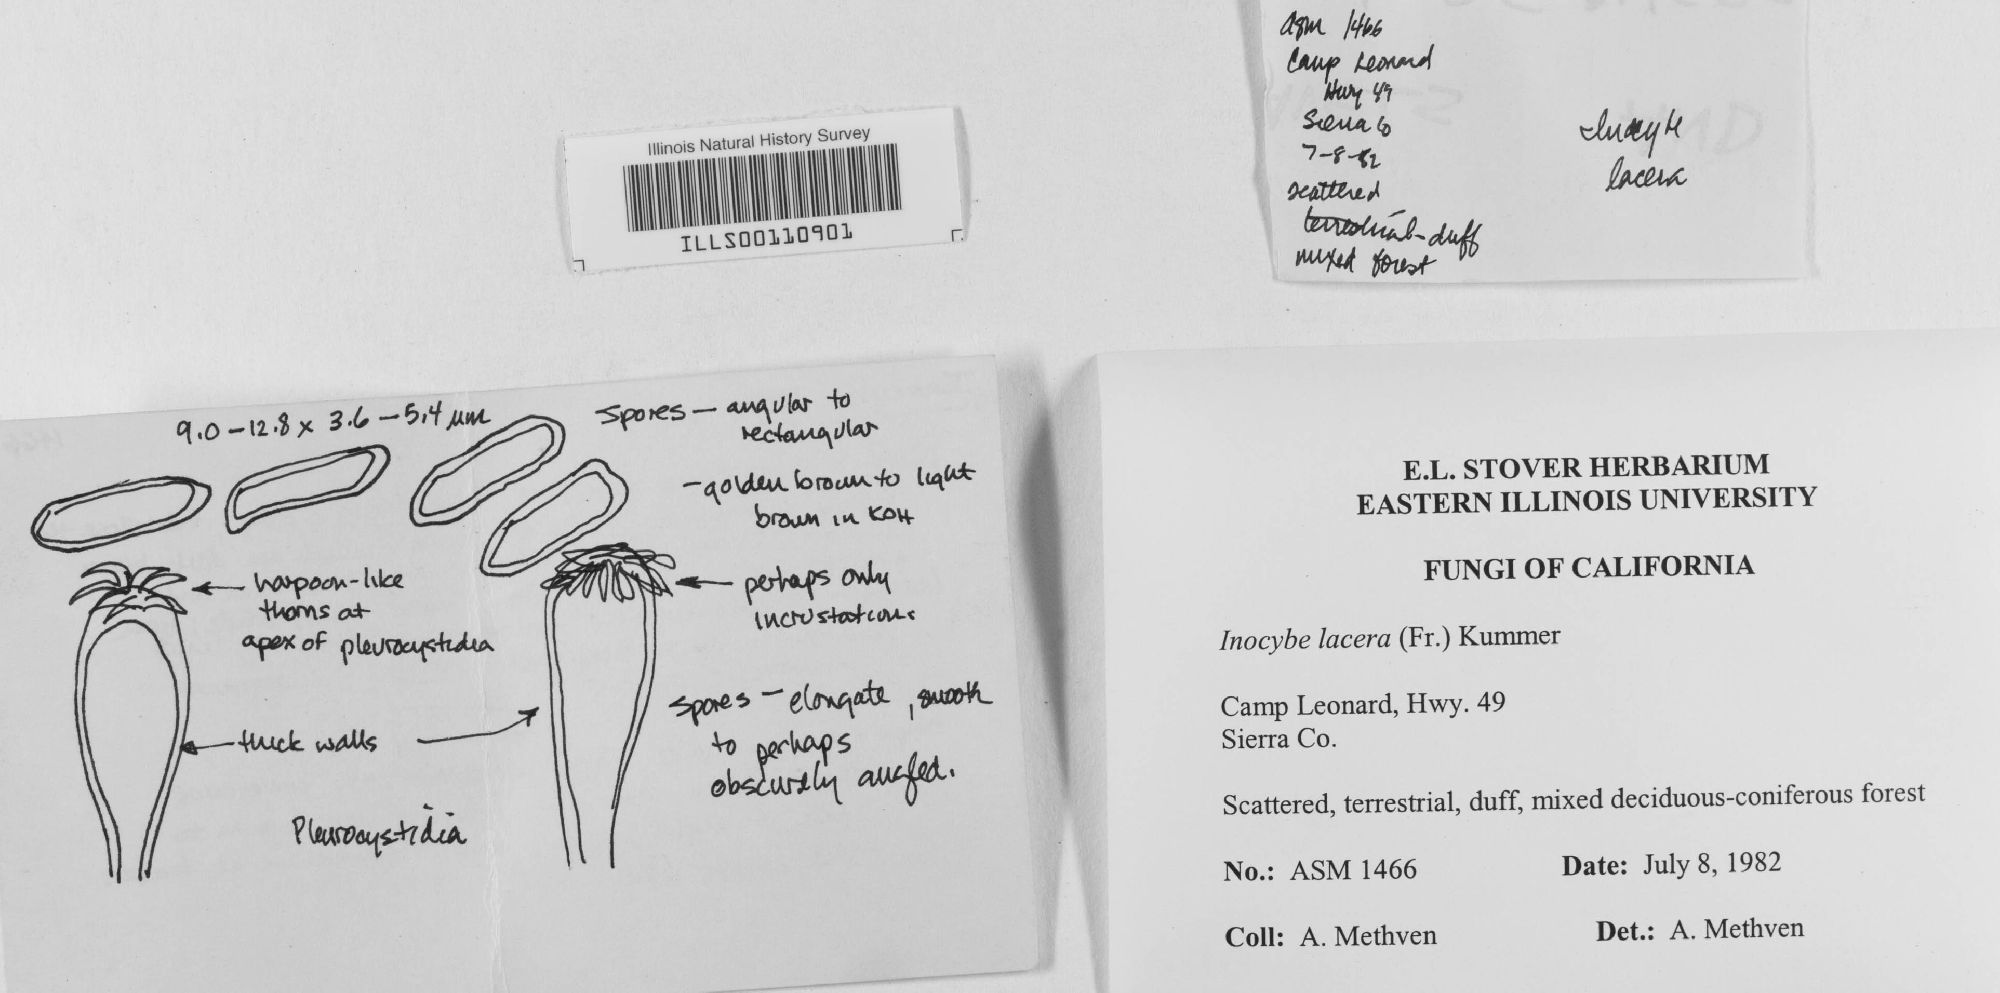 asm 1466
Camp Leonard
Hwy 49
Sierra Co
7-8-82
scattered
terrestrial-duff
mixed forest
Inocybe
lacera
Illinois Natural History Survey
ILLS00110901
9.0-12.8 x 3.6-5.4 µm
Spores - angular to
rectangular
- golden brown to light
brown in KOH
harpoon-like
thorns at
apex of pleurocystidia
perhaps only
incrustations
thick walls
Spores - elongate, smooth
to perhaps
obscurely angled.
Pleurocystidia
E.L. STOVER HERBARIUM
EASTERN ILLINOIS UNIVERSITY
FUNGI OF CALIFORNIA
Inocybe lacera (Fr.) Kummer
Camp Leonard, Hwy. 49
Sierra Co.
Scattered, terrestrial, duff, mixed deciduous-coniferous forest
No.: ASM 1466 Date: July 8, 1982
Coll: A. Methven Det.: A. Methven